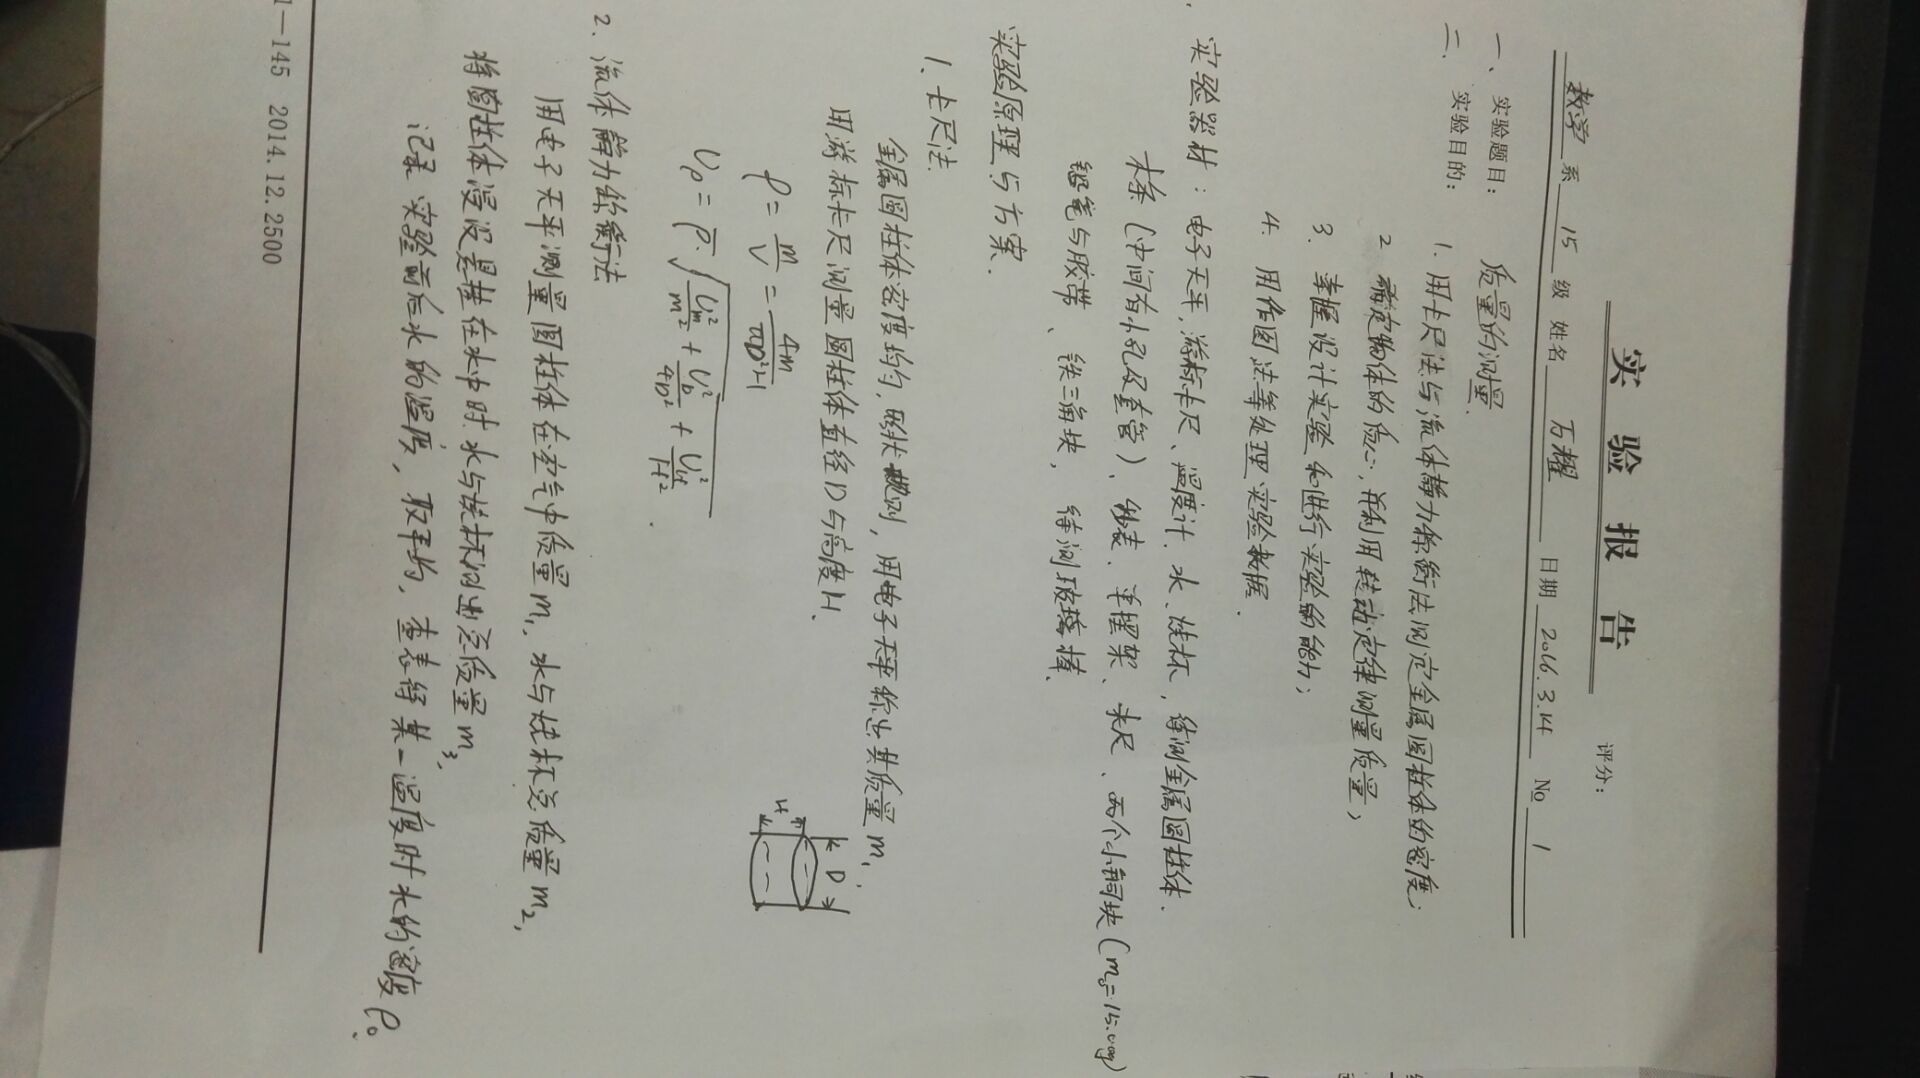 实验报告
评分:
数学 系 15 级 姓名 万耀 日期 2016.3.14 No 1
一、实验题目: 质量的测量.
二、实验目的: 1. 用卡尺法与流体静力称衡法测定金属圆柱体的密度;
2. 确定物体的质心, 并利用转动定律测量质量;
3. 掌握设计实验和进行实验的能力;
4. 用作图法等处理实验数据.
实验器材: 电子天平, 游标卡尺、温度计、水、烧杯, 待测金属圆柱体.
木条 (中间有小孔及套管)、秒表、单摆架、米尺、两个小铜块 (m₀=15.00g)
铅笔与胶带、铁三角块, 待测玻璃棒.
实验原理与方案.
1. 卡尺法.
金属圆柱体密度均匀, 形状规则, 用电子天平称出其质量 m₁,
用游标卡尺测量圆柱体直径D与高度H.
ρ = m/V = 4m/πD²H
D
H
U_ρ = ρ̄·√(U_m²/m² + U_D²/4D² + U_H²/H²).
2. 流体静力称衡法
用电子天平测量圆柱体在空气中质量 m₁, 水与烧杯总质量 m₂,
将圆柱体浸没悬挂在水中时水与烧杯的总质量 m₃,
记录实验前后水的温度, 取平均, 查表得某一温度时水的密度 ρ₀.
1-145 2014.12.2500